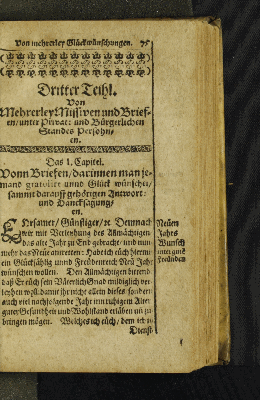 Von mehrerley Glückwünschungen. 75
Dritter Teihl.
Von
Mehrerley Missiven und Brief-
en/unter Privat: und Bürgerlichen
Standes Persohn/
en.
Das 1. Capitel.
Vonn Briefen/darinnen man je-
mand gratulirt unnd Glück wünschet/
sammt darauff gehörigen Antwort:
und Dancksagung/
en.
Ehrsamer/Günstiger/ꝛc Demnach
wir mit Verleihung des Allmächtigen
das alte Jahr zu End gebracht/ und nun
mehr das Neue antretten: Hab ich euch hiermit
ein Glückseelig unnd Freudenreich New Jahr
wünschen wollen. Den Allmächtigen bittend
daß Er euch sein Väterlich Gnad mildiglich ver-
leyhen woll damit ihr nicht allein dieses sondern
auch viel nachfolgende Jahr inn ruhigem Alter
guter Gesundheit und Wohlstand erleben un zu-
bringen mögen. Welches ich euch/ dem ich zu
Dienst
Neuen
Jahrs
Wunsch
unter guten
Freunden